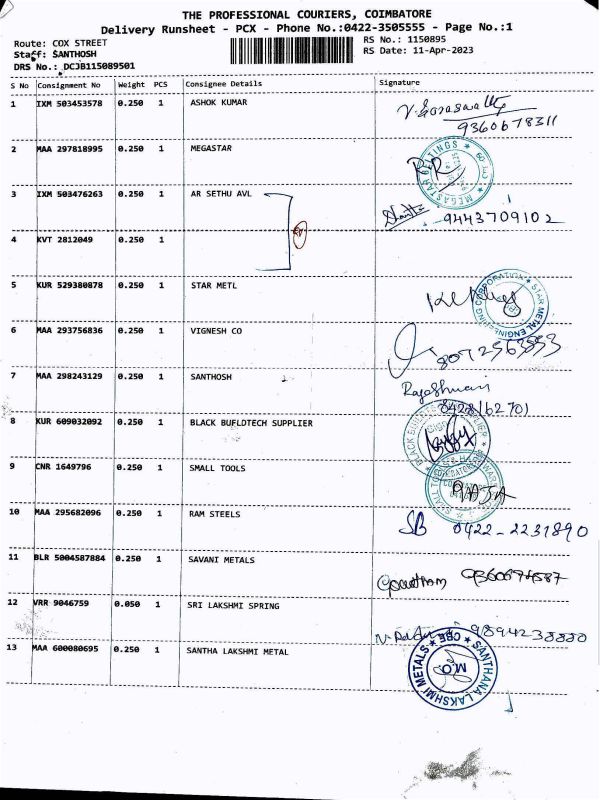 THE PROFESSIONAL COURIERS, COIMBATORE
Delivery Runsheet - PCX - Phone No.:0422-3505555 - Page No.:1
Route: COX STREET RS No.: 1150895
Staff: SANTHOSH RS Date: 11-Apr-2023
DRS No.: DCJB115089501
S No Consignment No Weight PCS Consignee Details Signature
1 IXM 503453578 0.250 1 ASHOK KUMAR
9360678311
2 MAA 297818995 0.250 1 MEGASTAR
3 IXM 503476263 0.250 1 AR SETHU AVL
9443709102
4 KVT 2812049 0.250 1
5 KUR 529380878 0.250 1 STAR METL
STAR METAL ENGINEERING CORPORATION
6 MAA 293756836 0.250 1 VIGNESH CO
7 MAA 298243129 0.250 1 SANTHOSH
8 KUR 609032092 0.250 1 BLACK BUFLDTECH SUPPLIER
9 CNR 1649796 0.250 1 SMALL TOOLS
RAJA
10 MAA 295682096 0.250 1 RAM STEELS SB 0422-2231890
11 BLR 5004587884 0.250 1 SAVANI METALS
Goutham
12 VRR 9046759 0.050 1 SRI LAKSHMI SPRING
9894238880
13 MAA 600080695 0.250 1 SANTHA LAKSHMI METAL
SANTHANA LAKSHMI METALS ★ CBE ★